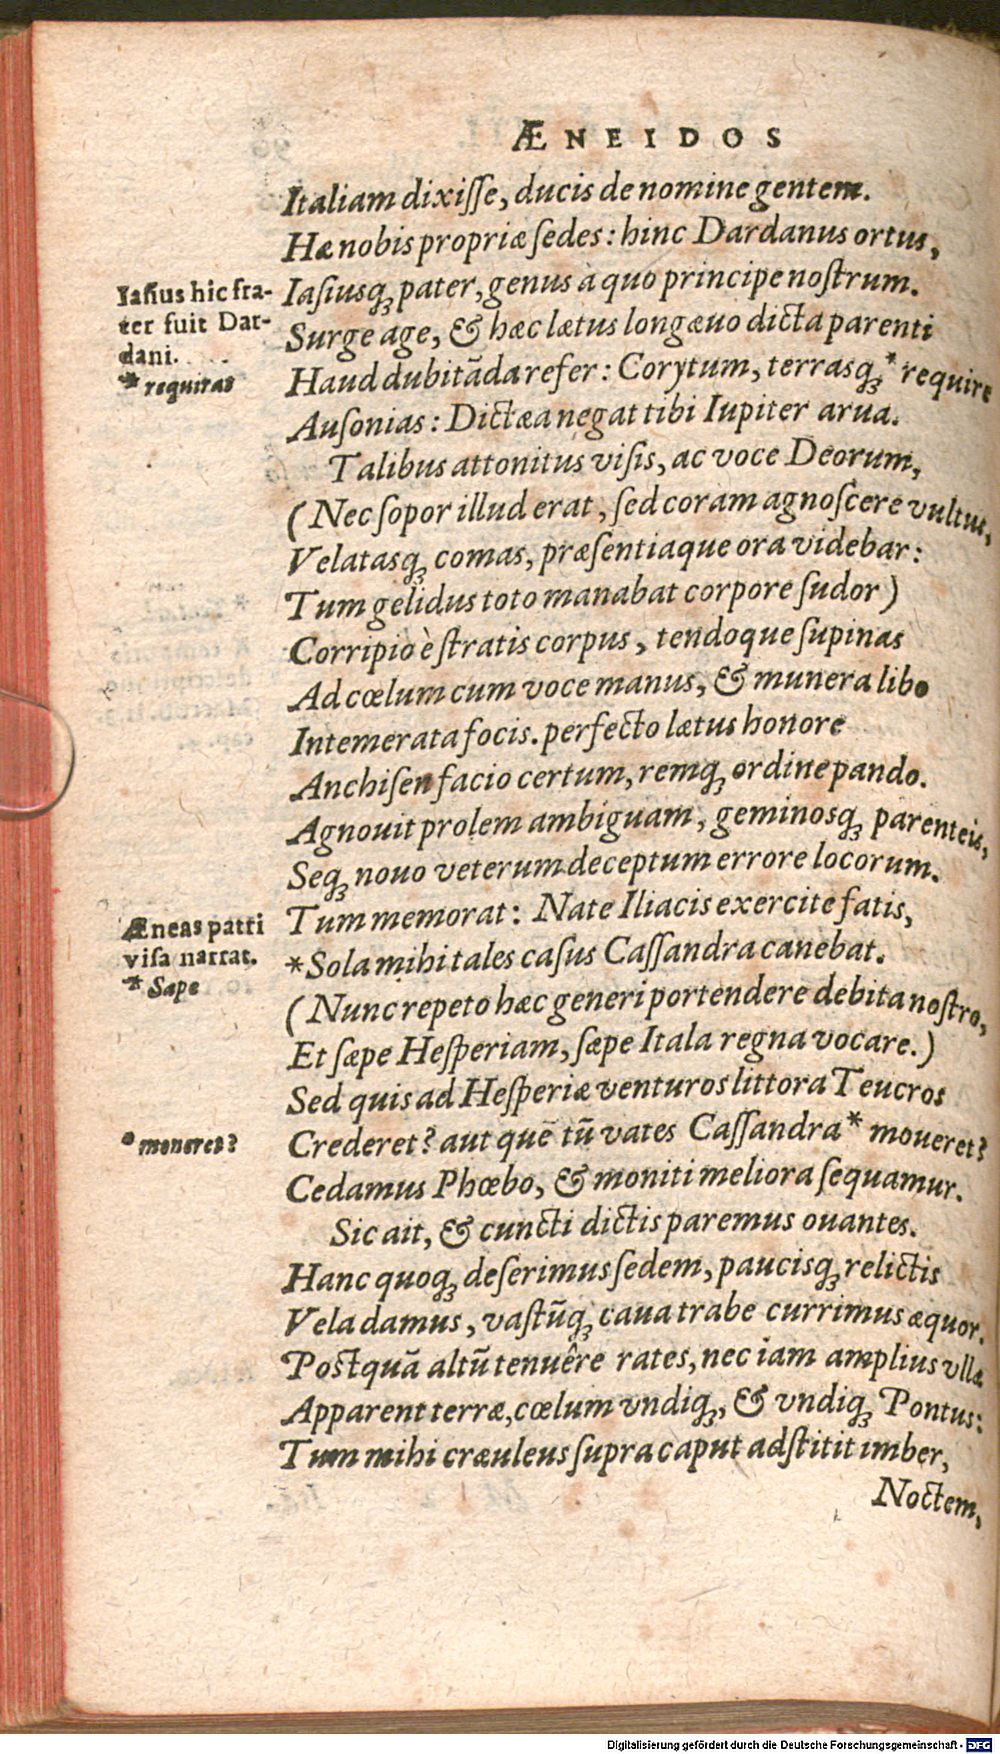 ÆNEIDOS
Italiam dixiſſe, ducis de nomine gentem.
Hæ nobis propriæ ſedes: hinc Dardanus ortus,
Iaſiusq́; pater, genus à quo principe noſtrum.
Surge age, & hæc lætus longæuo dicta parenti
Haud dubitāda refer: Corytum, terrasq́;* require
Auſonias: Dictæa negat tibi Iupiter arua.
Talibus attonitus viſis, ac voce Deorum,
(Nec ſopor illud erat, ſed coram agnoſcere vultus,
Velatasq́; comas, præſentiaque ora videbar:
Tum gelidus toto manabat corpore ſudor)
Corripio è ſtratis corpus, tendoque ſupinas
Ad cœlum cum voce manus, & munera libo
Intemerata focis. perfecto lætus honore
Anchiſen facio certum, remq́; ordine pando.
Agnouit prolem ambiguam, geminosq́; parenteis,
Seq́; nouo veterum deceptum errore locorum.
Tum memorat: Nate Iliacis exercite fatis,
*Sola mihi tales caſus Caſſandra canebat.
(Nunc repeto hæc generi portendere debita noſtro,
Et ſæpe Heſperiam, ſæpe Itala regna vocare.)
Sed quis ad Heſperiæ venturos littora Teucros
Crederet? aut quē tū vates Caſſandra* moueret?
Cedamus Phœbo, & moniti meliora ſequamur.
Sic ait, & cuncti dictis paremus ouantes.
Hanc quoq́; deſerimus ſedem, paucisq́; relictis
Vela damus, vaſtūq́; caua trabe currimus æquor.
Poſtquā altū tenuêre rates, nec iam amplius vllæ
Apparent terræ, cœlum vndiq́;, & vndiq́; Pontus:
Tum mihi cræuleus ſupra caput adſtitit imber,
Noctem,
Iaſius hic fra-
ter fuit Dar-
dani.
* requiras
Æneas patri
viſa narrat.
* Sæpe
* moneret?
Digitalisierung gefördert durch die Deutsche Forschungsgemeinschaft - DFG